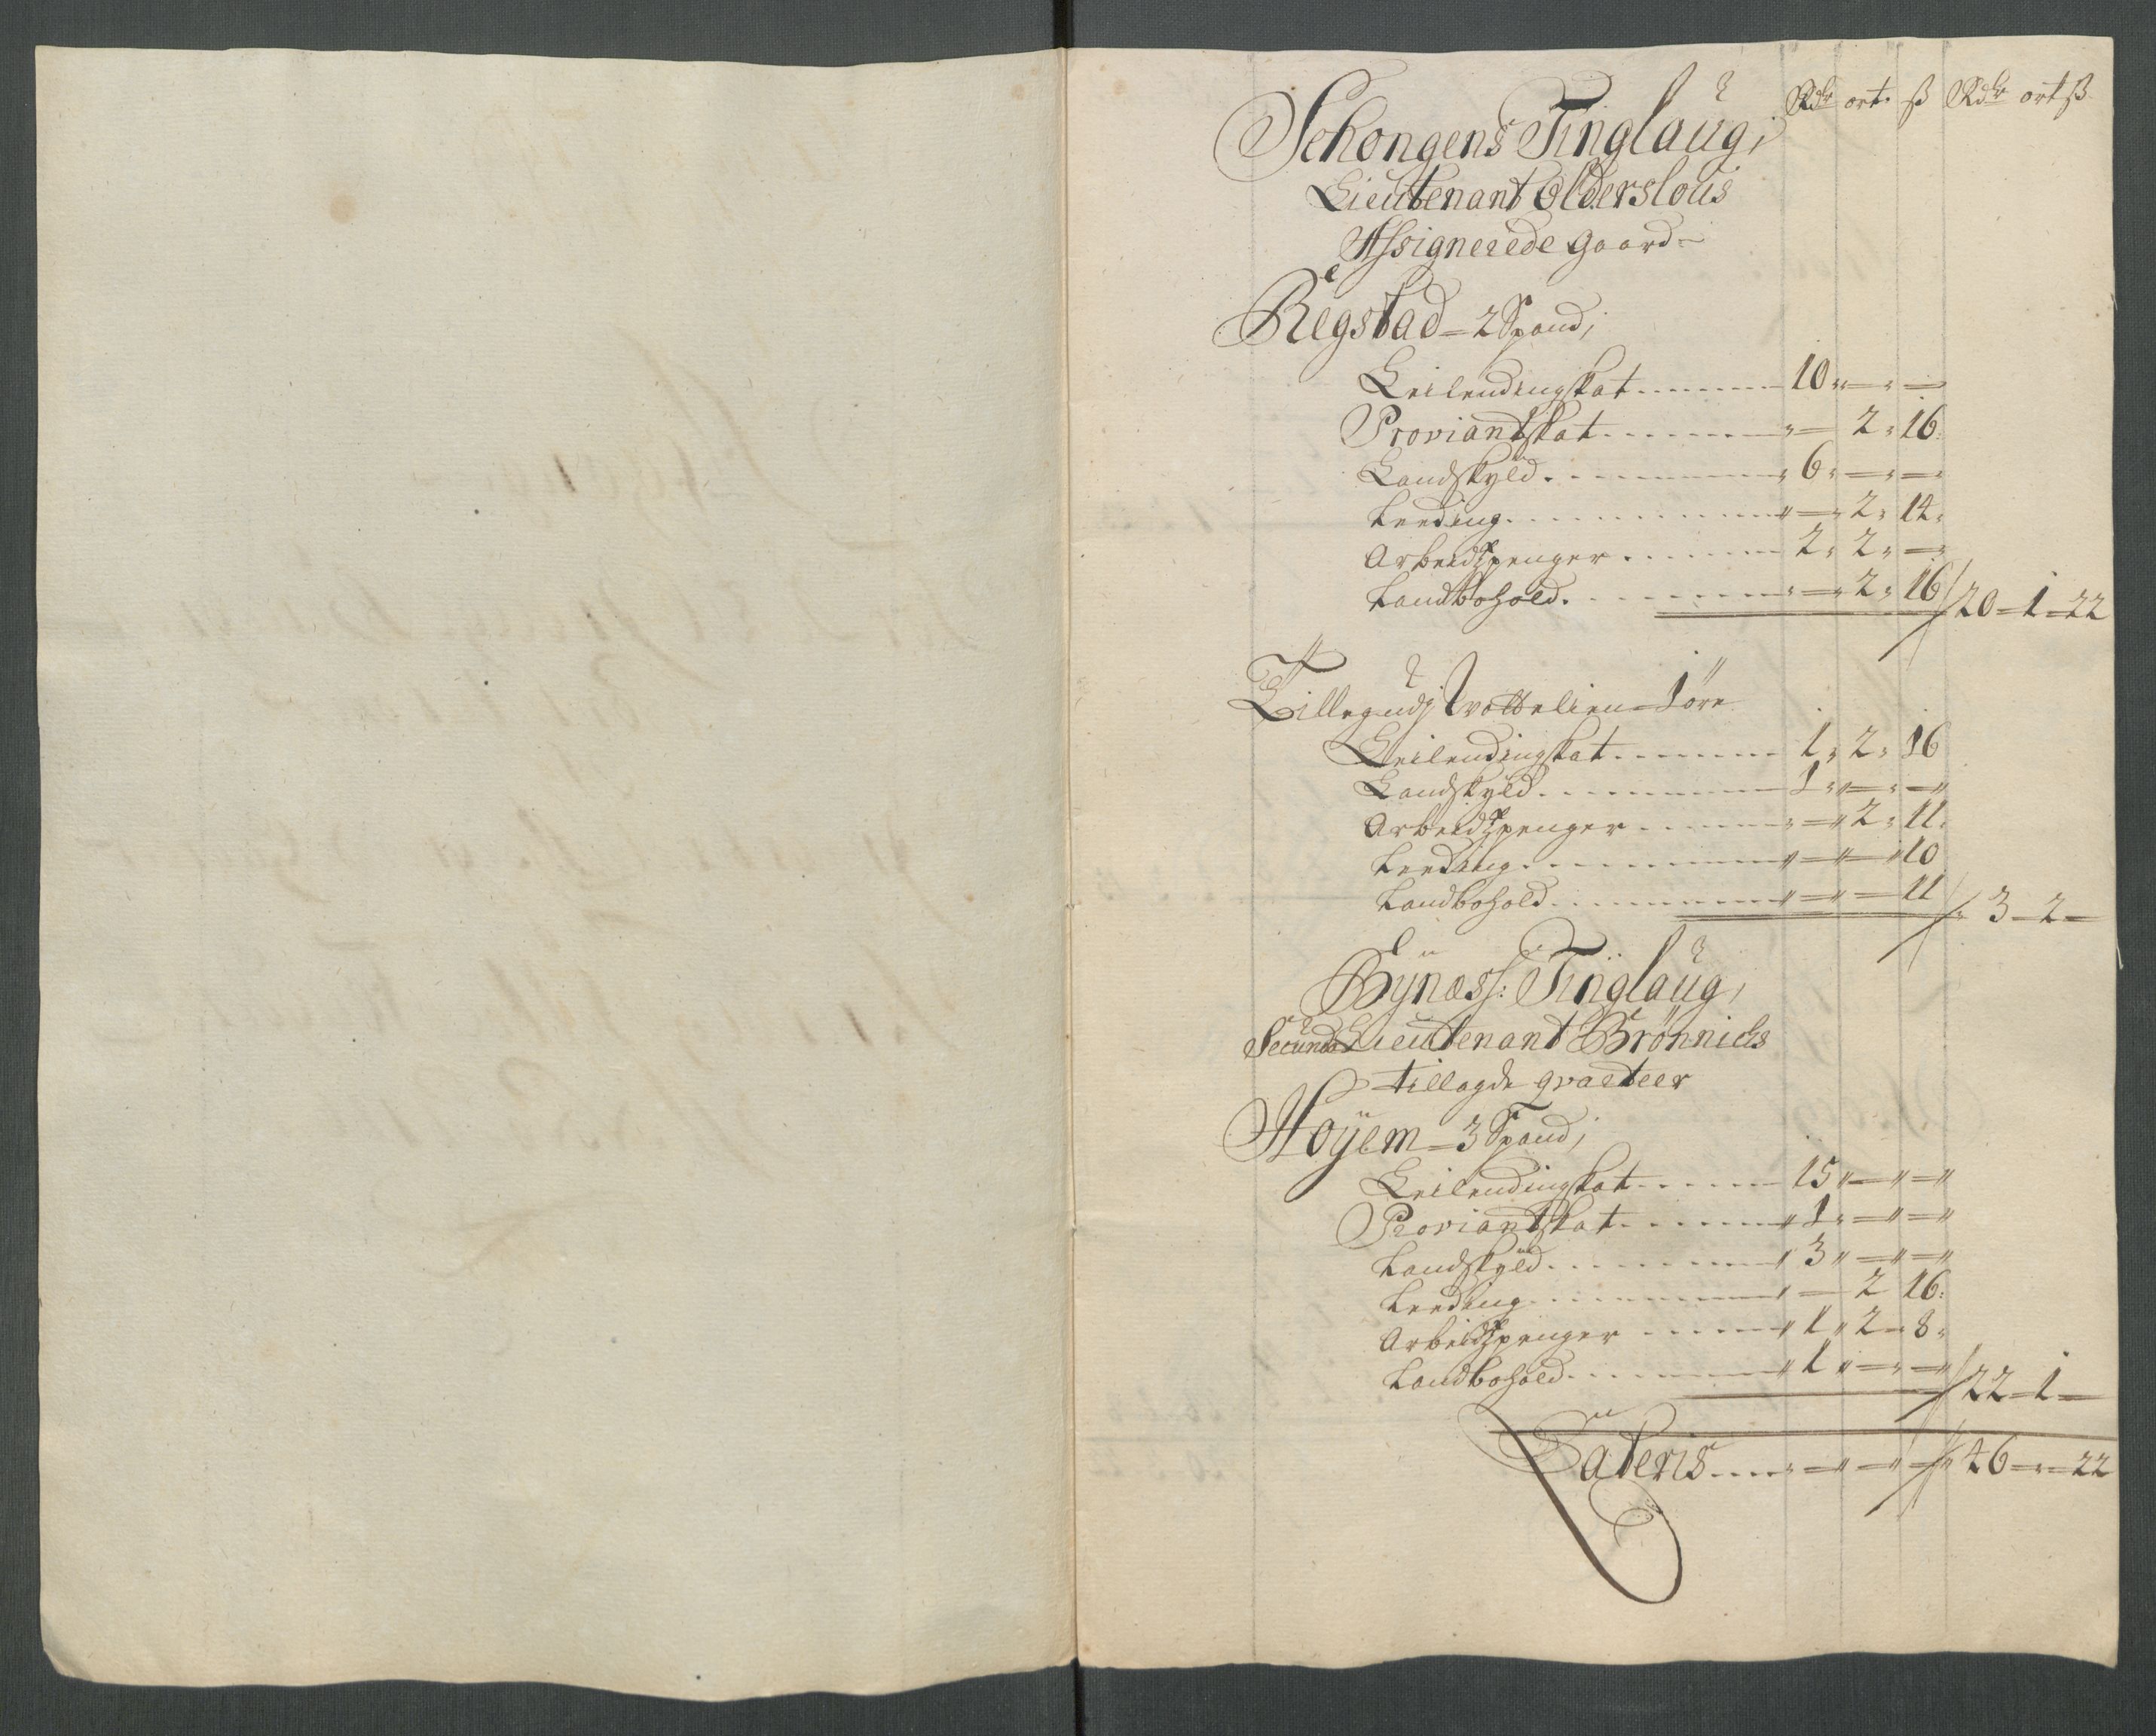 Rdr ort ß Rdr ort ß
Schongens Tinglaug,
Lieutenant Olderslous
Assignerede Gaard
Regstad = 2 Spand,
Leilendingskat 10 " — " —
Proviantskat " — 2 " 16
Landskyld " 6 " — " —
Leeding " — 2 " 14
Arbeidspenger 2 " 2 " —
Landbohold " — 2 " 16 / 20 — 1 — 22
Tillegnds = 1 öre
Leilendingskat 1 " 2 " 16
Landskyld 1 " — " —
Arbeidspenger " — 2 " 11
Leeding " — " — " 10
Landbohold " — " — 11 / 3 — 2 —
Bÿnæss: Tinglaug,
Secund Lieutenant Brönnichs
tillagde qvarteer
Höÿem = 3 Spand,
Leilendingskat 15 " — " — "
Proviantskat " 1 " — " — "
Landskÿld " 3 " — " — "
Leeding " — 2 16
Arbeidspenger " 1 " 2 — 8
Landbohold " 1 " — " — / 22 — 1 —
Lateris " — " — " — / 46 — " — 22